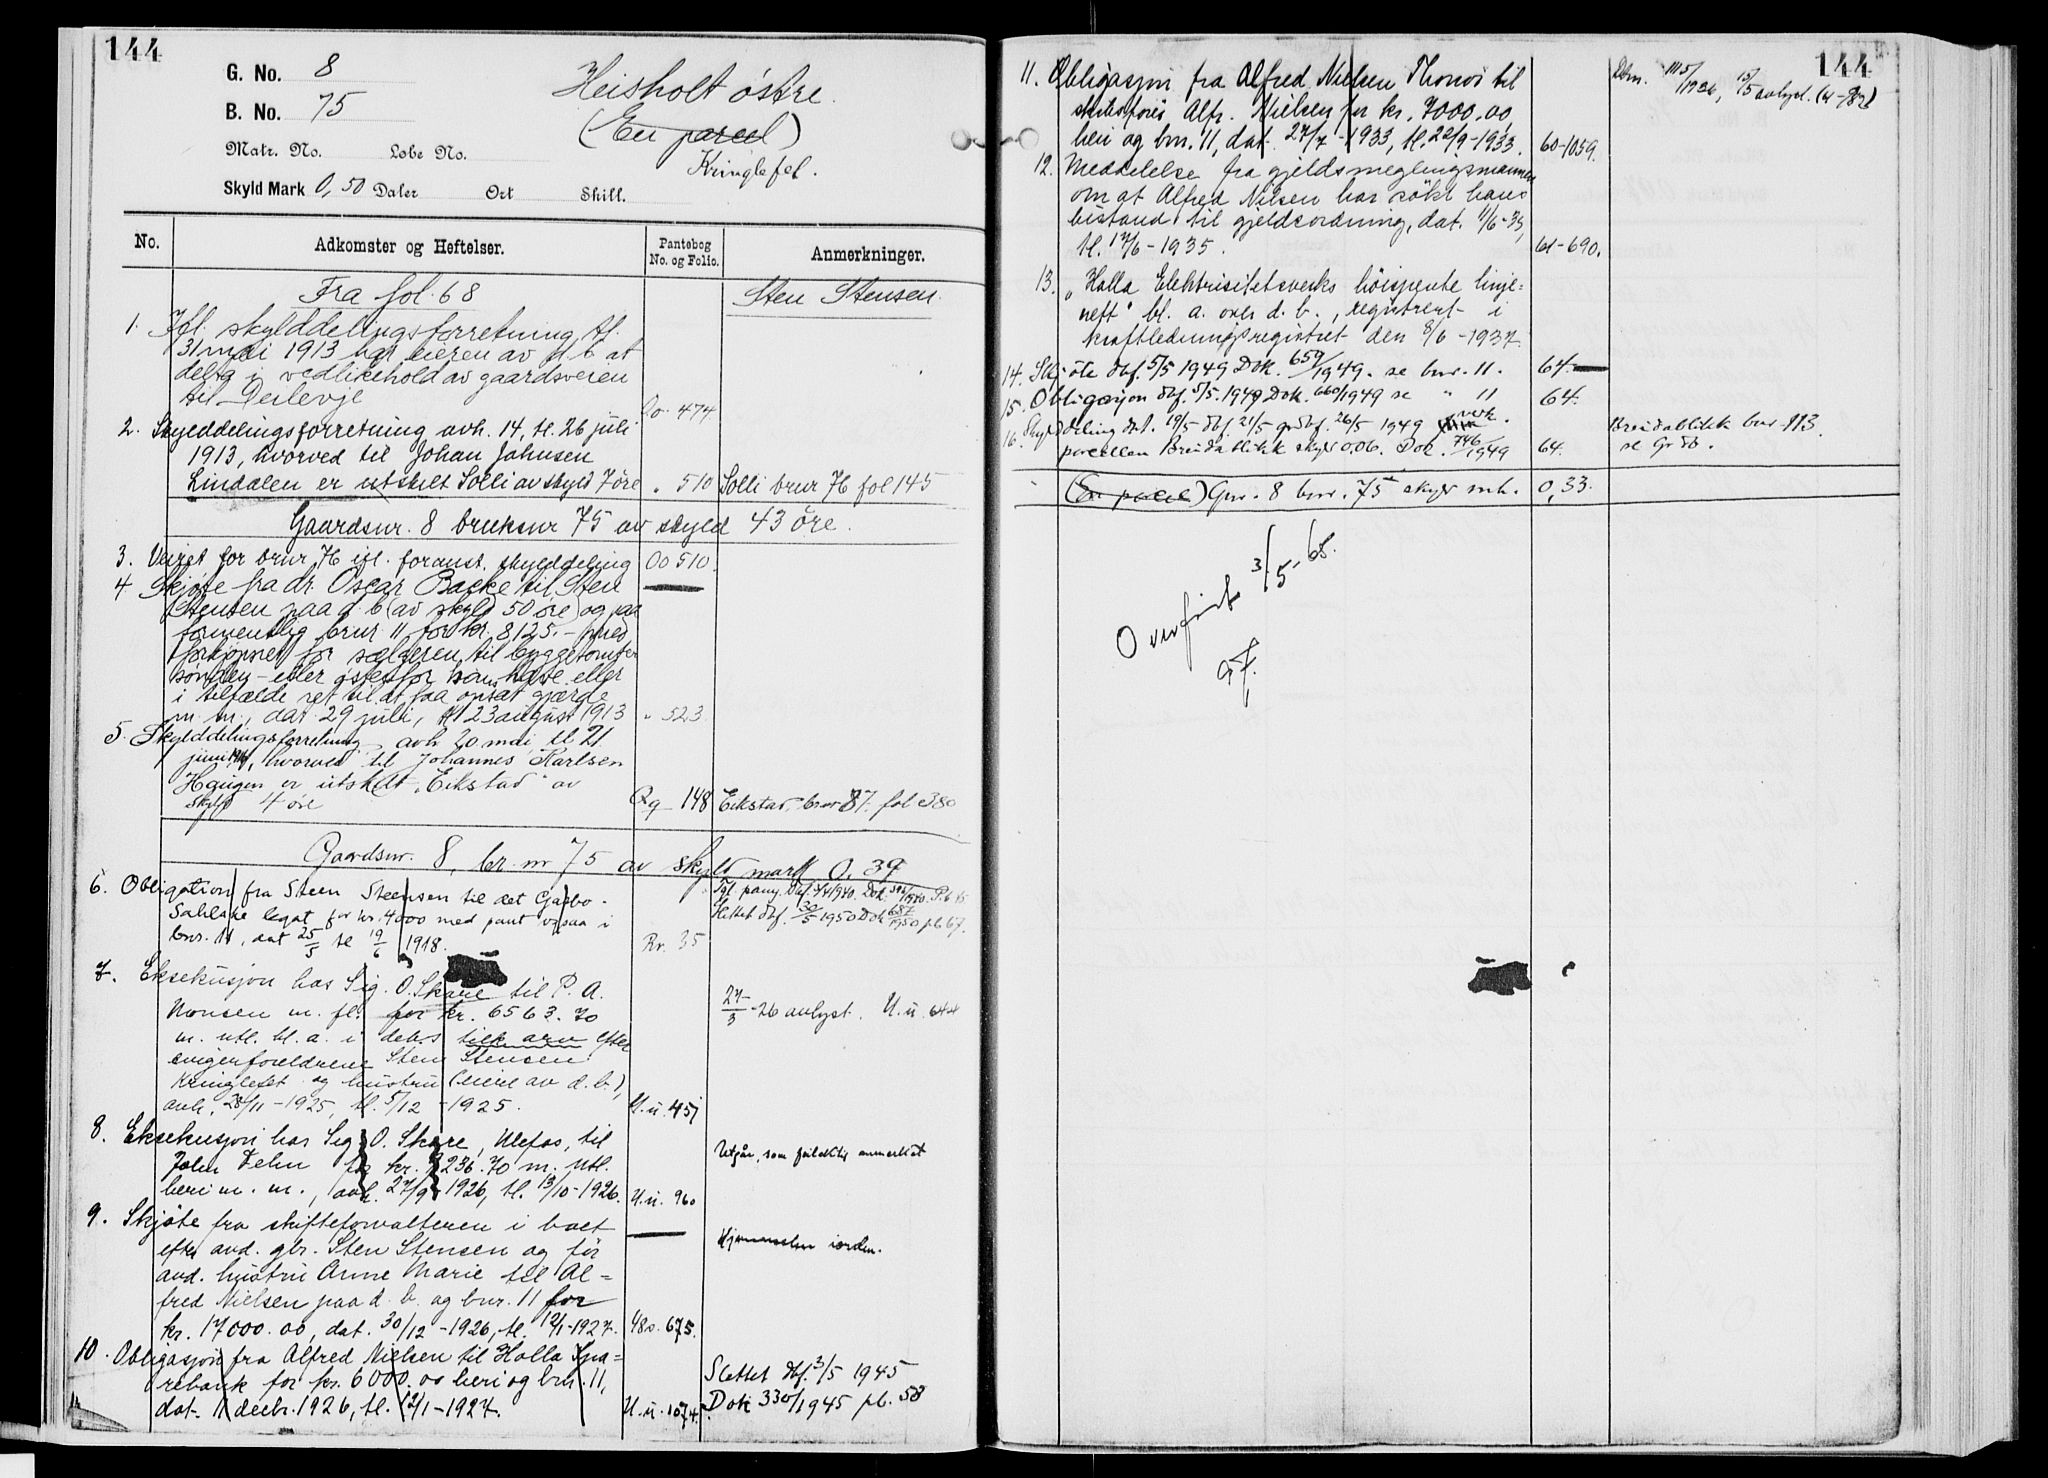 144
G. No. 8
B. No. 75
Matr. No. Løbe No.
Skyld Mark 0,50 Daler Ort Skill.
Heisholt østre.
(En parcel)
Kringlefet.
No. Adkomster og Heftelser. Pantebog No. og Folio. Anmerkninger.
Fra fol. 68
Sten Stensen.
1. Ifl. skylddelingsforretning tl.
31 mai 1913 har eieren av d. b. at
delta i vedlikehold av gaardsveien
til Deilevje Oo 474
2. Skylddelingsforretning avh. 14, tl. 26 juli
1913, hvorved til Johan Johnsen
Lindalen er utskilt Solli av skyld 7 øre " 510 Solli brnr 76 fol 145
Gaardsnr. 8 bruksnr 75 av skyld 43 øre.
3. Veiret for brnr 76 ifl. foranst. skylddeling Oo 510.
4 Skjøte fra dr. Oscar Backe til Sten
Stensen paa d. b (av skyld 50 øre) og paa
formentlig brnr 11 for kr. 8125.- med
forkjøpsret for sælgeren til byggetomter
sønden- eller østenfor hans have eller
i tilfælde ret til at faa opsat gjærde
m. m., dat. 29 juli, tl 23 august 1913 " 523
5. Skylddelingsforretning avh 20 mai, tl 21
juni, hvorved til Johannes Karlsen
Haugen er utskilt "Eikstad" av
skyld 4 øre Qq 148 Eikstad, brnr 87. fol 380
Gaardsnr. 8, br. nr 75 av skyld mark 0.39
6. Obligation fra Steen Steensen til det Casbo-
Sahlske legat for kr. 4000 med pant ogsaa i
bnr. 11, dat 25/5 tl 19/6 1918. Rr. 35
Slettet dbf. 30/5 1950 Dok 687/1950 pb 67.
7. Eksekusjon hos Sig. O. Skare til P. A.
Monsen m. fl. for kr. 6563.70
m. utl. bl. a. i deb.s tilk. arv efter
svigerforeldrene Sten Stensen
Kringlefet og hustru (eiere av d. b.),
avh. 28/11-1925, tl. 5/12-1925. U.ü. 451
27/3-26 avlyst. U.ü. 644
8. Eksekusjon hos Sig. O. Skare, Ulefos, til
John Dehn for kr. 236.70 m. utl.
heri m. m., avh. 27/9 1926, tl. 13/10-1926. U.ü. 960
Utgår, som feilaktig anmerket
9. Skjøte fra skifteforvalteren i boet
efter avd. gbr. Sten Stensen og før
avd. hustru Anne Marie til Al-
fred Nielsen paa d. b. og bnr. 11 for
kr. 17000.00, dat. 30/12-1926, tl. 12/1-1927. 48o. 675.
Hjemmelen iorden.
10. Obligasjon fra Alfred Nielsen til Holla Spa-
rebank for kr. 6000.00 heri og bnr. 11,
dat. 11 decbr. 1926, tl. 12/1-1927. U.ü. 1074.
Slettet dbf. 3/5 1945
Dok 330/1945 pb. 58
144
11. Obligasjon fra Alfred Nielsen Thorvi til
skibsfører Alfr. Nielsen for kr. 7000.00,
heri og bnr. 11, dat. 27/7-1933, tl. 22/9-1933. 60-1059.
12. Meddelelse fra gjeldsmeglingsmannen
om at Alfred Nilsen har søkt hans
bistand til gjeldsordning, dat. 11/6-35,
tl. 17/6-1935. 61-690.
13. "Holla Elektrisitetsverks høispente linje-
nett" bl. a. over d. b., registrert i
kraftledningsregistret den 8/6-1937.
14. Skjøte dbf. 5/5 1949 Dok. 659/1949. se bnr. 11. 64.
15. Obligasjon dbf. 5/5. 1949 Dok. 660/1949 se " 11 64.
16. Skylddeling dat. 19/5 dbf 21/5 grdbf. 26/5 1949
parcellen Breidablikk skyld 0.06. Dok. 746/1949 64.
Breidablikk bnr 113.
se Grdb.
(En parcel) Gnr. 8 bnr. 75 skyld mk. 0,33.
Overført 3/5-65.